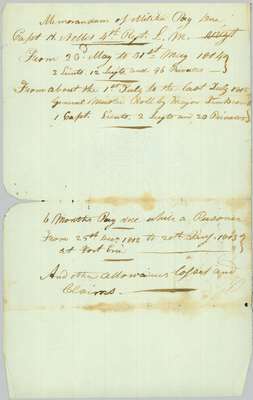 Memorandum of Militia Pay due
Capt H. Nelles 4th Regt. L. M.
From 20 May to 31st May 1814
2 Lieuts. 12 Sergts and 46 Privates
From about the 1st July to the last July
General Muster Roll by Major
1 Capt. Lieuts. 2 Sergts and 20 Privates
6 Months Pay due while a Prisoner
From 25th 1812 to 20th 1813
at Fort Erie
And other allowances Cofset and
Claims.